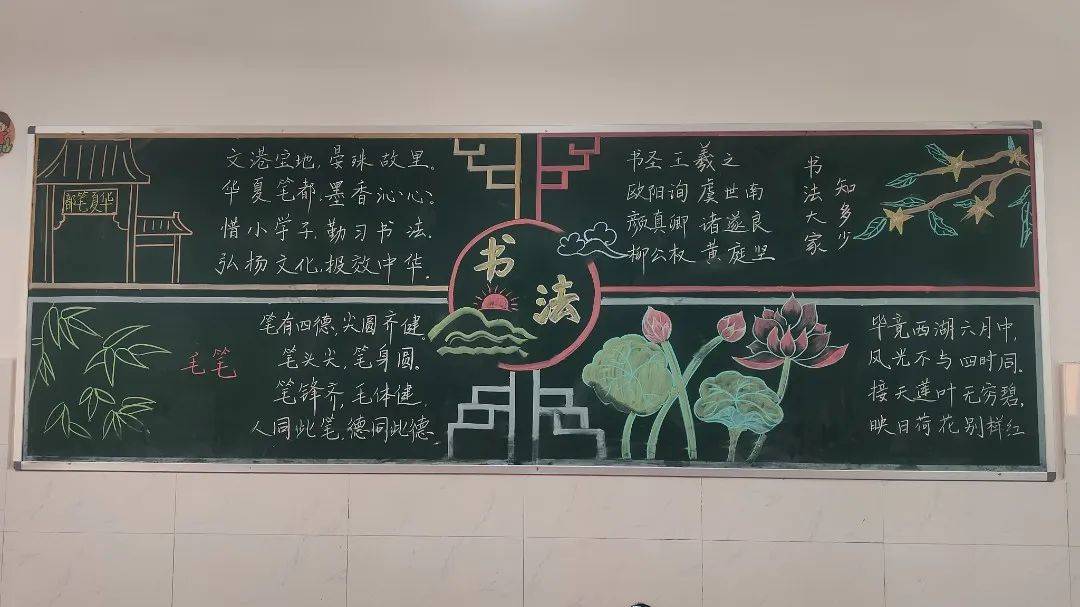 都笔夏华
文港宝地,晏殊故里。
华夏笔都,墨香沁心。
惜小学子,勤习书法.
弘扬文化,报效中华.
书圣王羲之
欧阳询 虞世南
颜真卿 诸遂良
柳公权 黄庭坚
书法大家
知多少
书法
毛笔
笔有四德,尖圆齐健.
笔头尖,笔身圆.
笔锋齐,毛体健.
人同此笔,德同此德.
毕竟西湖六月中,
风光不与四时同.
接天莲叶无穷碧,
映日荷花别样红